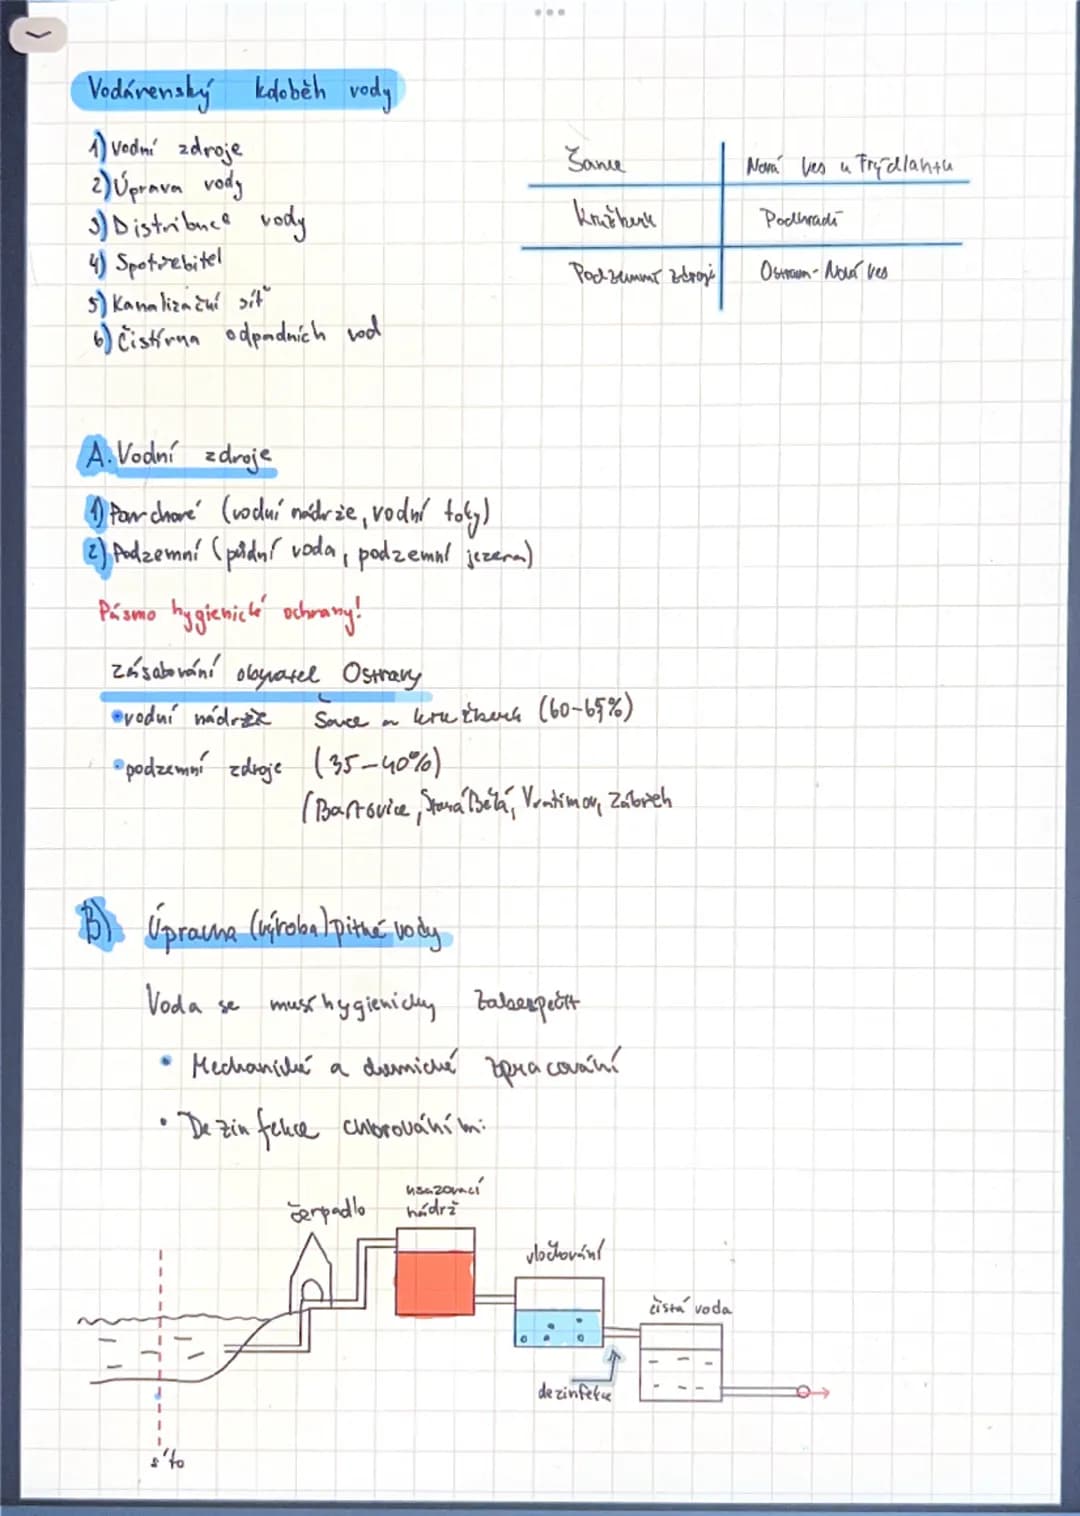 Vodárenský koloběh vody
1) Vodní zdroje
2) Úprava vody
3) Distribuce vody
4) Spotřebitel
5) Kanalizační síť
6) Čistírna odpadních vod
Šance Nová Ves u Frýdlantu
Kružberk Podhradí
Podzemní zdroje Ostrava-Nová Ves
A. Vodní zdroje
1) Povrchové (vodní nádrže, vodní toky)
2) Podzemní (půdní voda, podzemní jezera)
Pásmo hygienické ochrany!
Zásobování obyvatel Ostravy
•vodní nádrže Šance a Kružberk (60-65%)
•podzemní zdroje (35-40%)
(Bartovice, Stará Bělá, Vratimov, Zábřeh
B) Úpravna (výroba) pitné vody
Voda se musí hygienicky zabezpečit
• Mechanické a chemické zpracování
• Dezinfekce chlorováním:
čerpadlo
usazovací
nádrž
vločkování
čistá voda
dezinfekce
síto